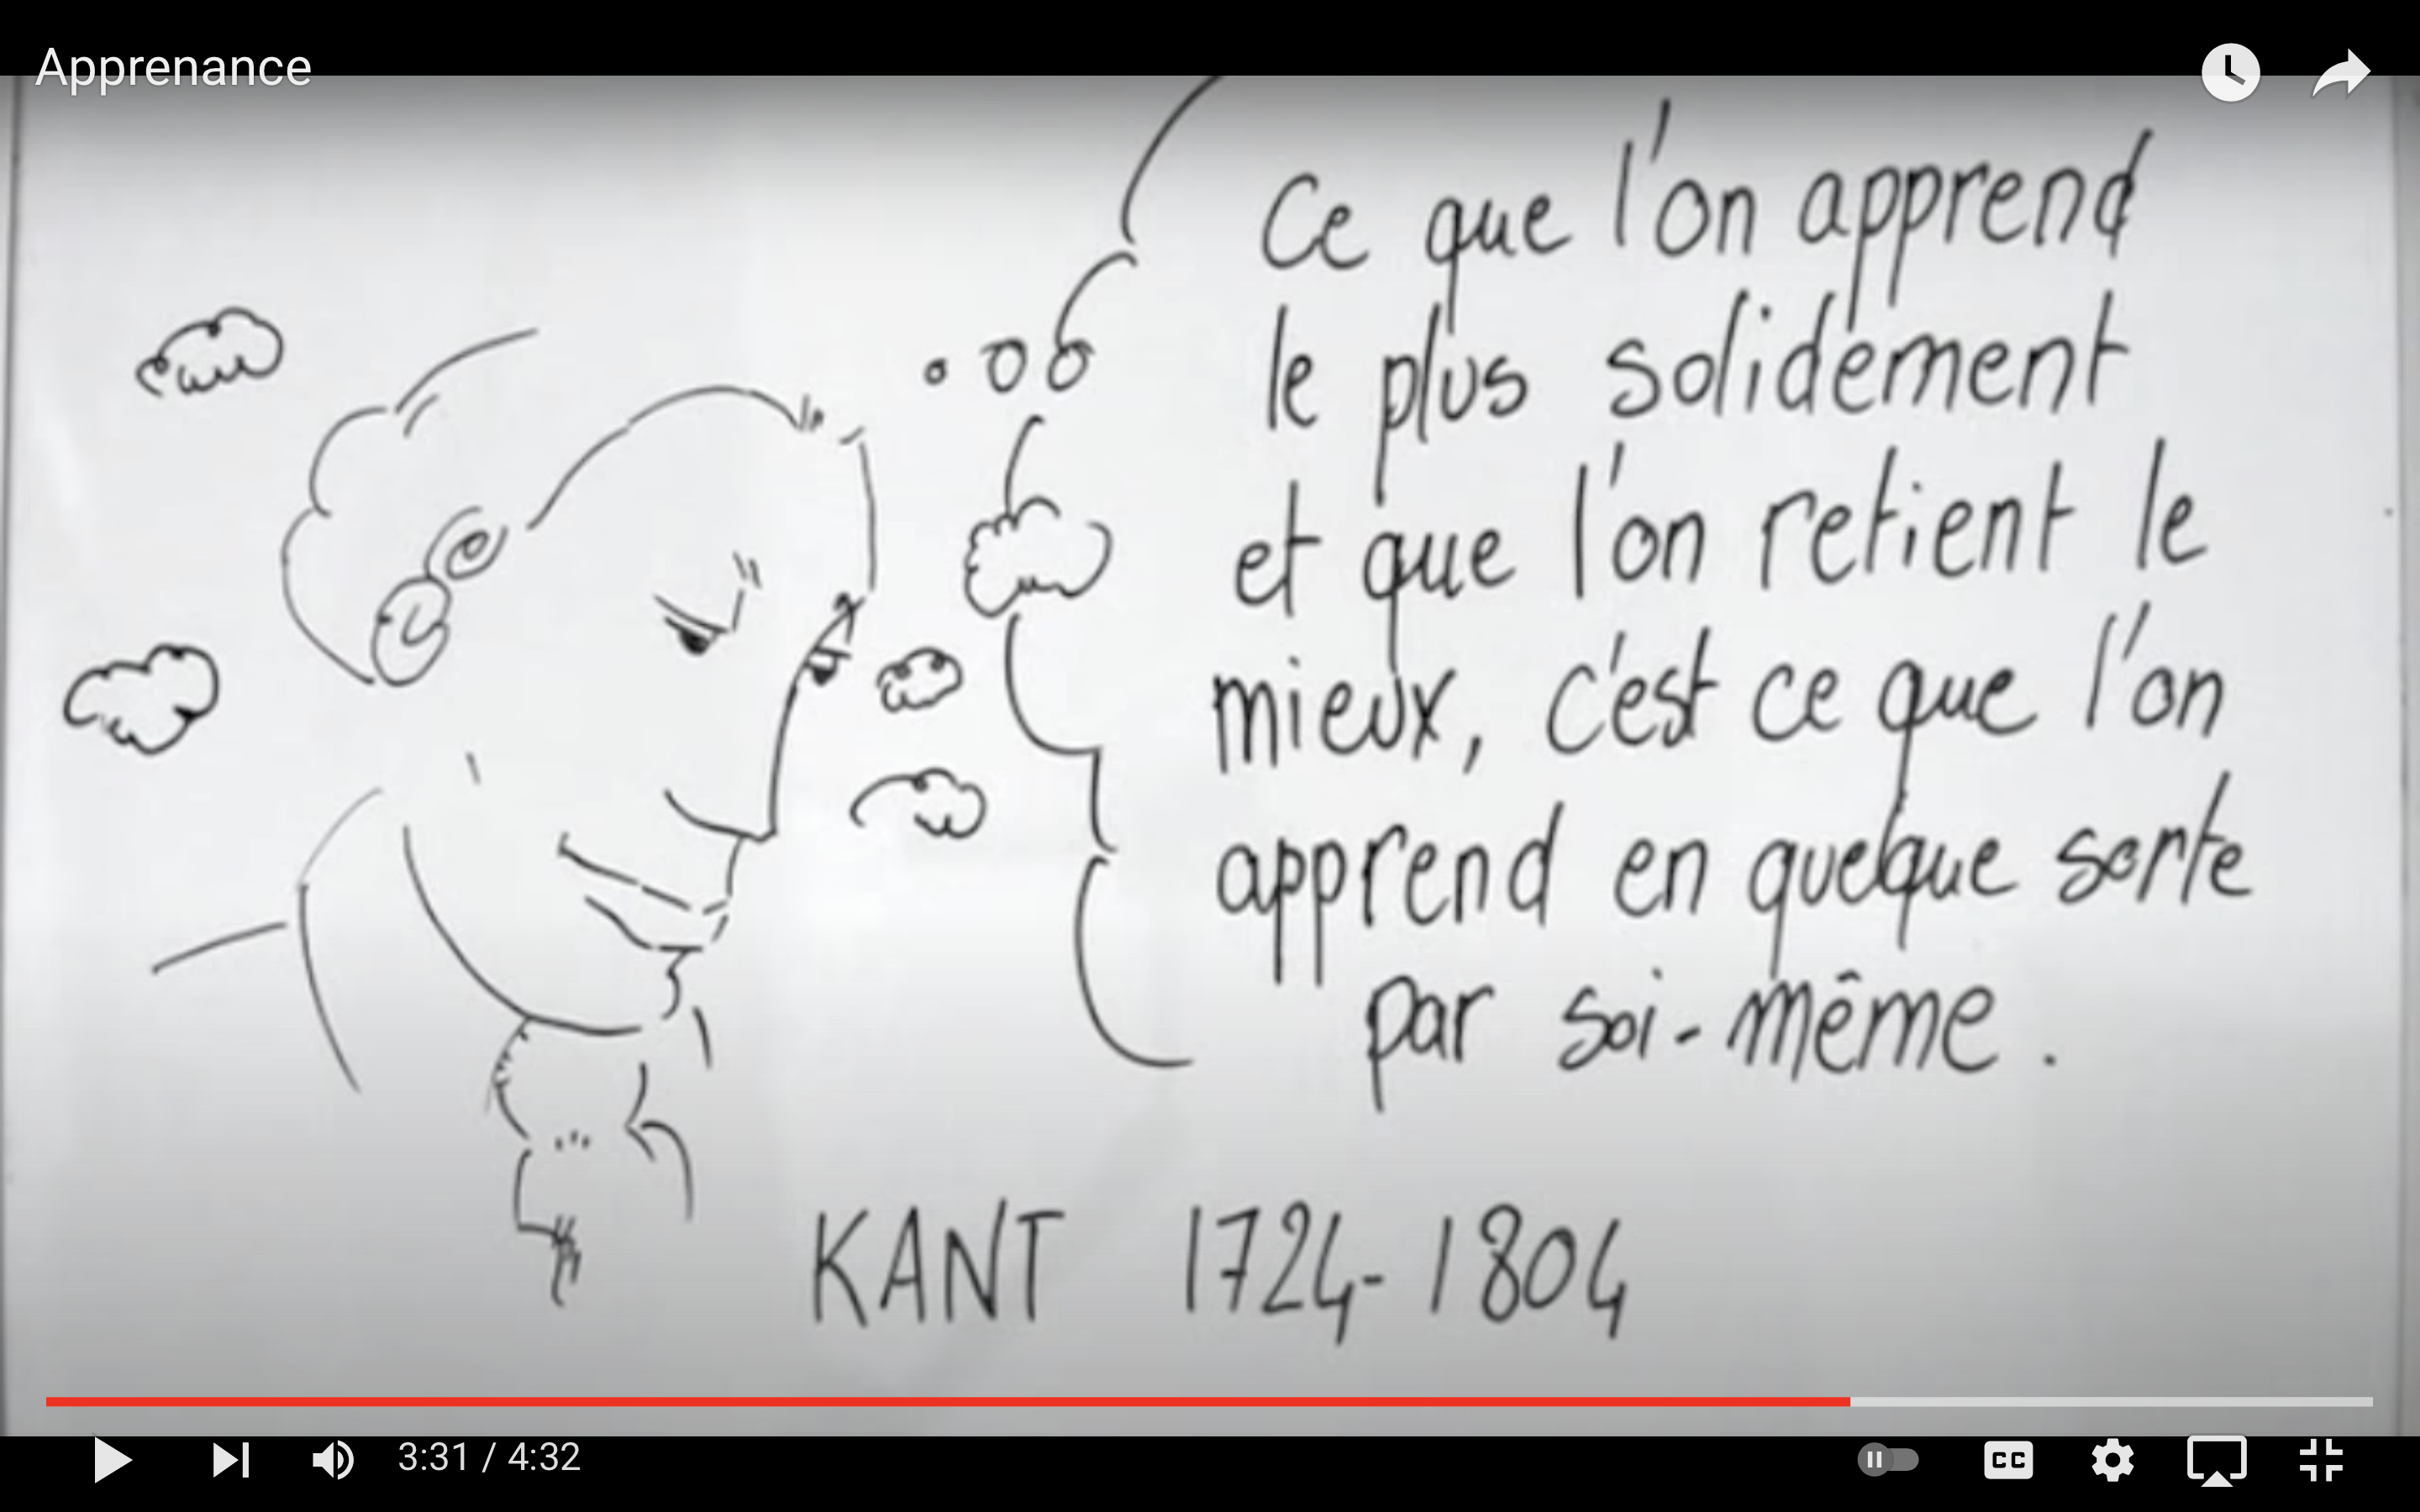 Apprenance
Ce que l'on apprend
le plus solidement
et que l'on retient le
mieux, c'est ce que l'on
apprend en quelque sorte
par soi-même.
KANT 1724-1804
3:31 / 4:32
CC